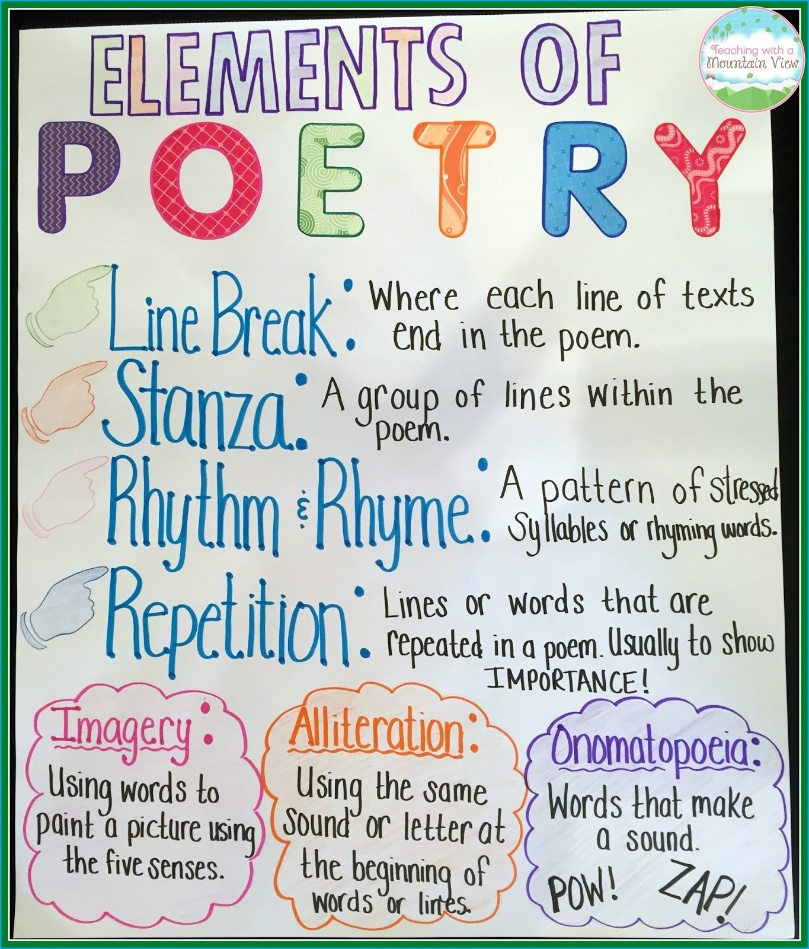 ELEMENTS OF
Teaching with a
Mountain View
POETRY
Line Break: Where each line of texts
end in the poem.
Stanza: A group of lines within the
poem.
Rhythm & Rhyme: A pattern of stressed
syllables or rhyming words.
Repetition: Lines or words that are
repeated in a poem. Usually to show
IMPORTANCE!
Imagery:
Using words to
paint a picture using
the five senses.
Alliteration:
Using the same
sound or letter at
the beginning of
words or lines.
Onomatopoeia:
Words that make
a sound.
POW! ZAP!